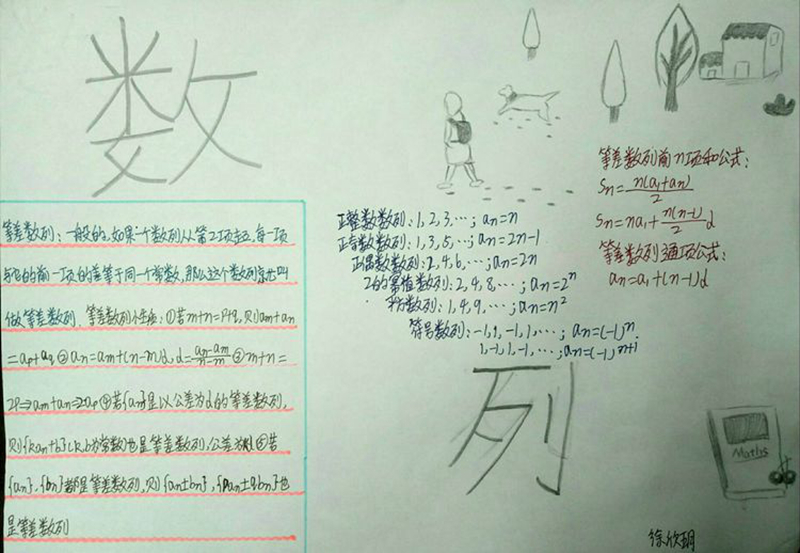 数
等差数列：一般的，如果一个数列从第2项起，每一项
与它的前一项的差等于同一个常数，那么这个数列就叫
做等差数列．等差数列性质：①若m+n=p+q，则am+an
=ap+aq ②an=am+(n-m)d，d=an-am/n-m ③m+n=
2p⇒am+an=2ap ④若{an}是以公差为d的等差数列，
则{kan+b}(k,b为常数)也是等差数列，公差为kd ⑤若
{an}，{bn}都是等差数列，则{an±bn}，{pan±qbn}也
是等差数列
正整数数列：1，2，3，…；an=n
正奇数数列：1，3，5，…；an=2n-1
正偶数数列：2，4，6，…；an=2n
2的幂值数列：2，4，8，…，an=2^n
平方数列：1，4，9，…，an=n^2
符号数列：-1，1，-1，1，…；an=(-1)^n．
1，-1，1，-1，…；an=(-1)^n+1
等差数列前n项和公式：
Sn=n(a1+an)/2
Sn=na1+n(n-1)/2 d
等差数列通项公式：
an=a1+(n-1)d
列
Maths
徐欣玥